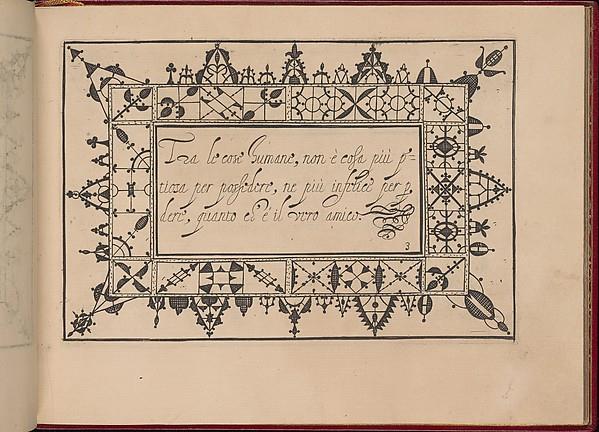 Tra le cose humane, non è cosa più p̄=
tiosa per possedere, ne più infelice per p̱
dere, quanto che è il vero amico.
3